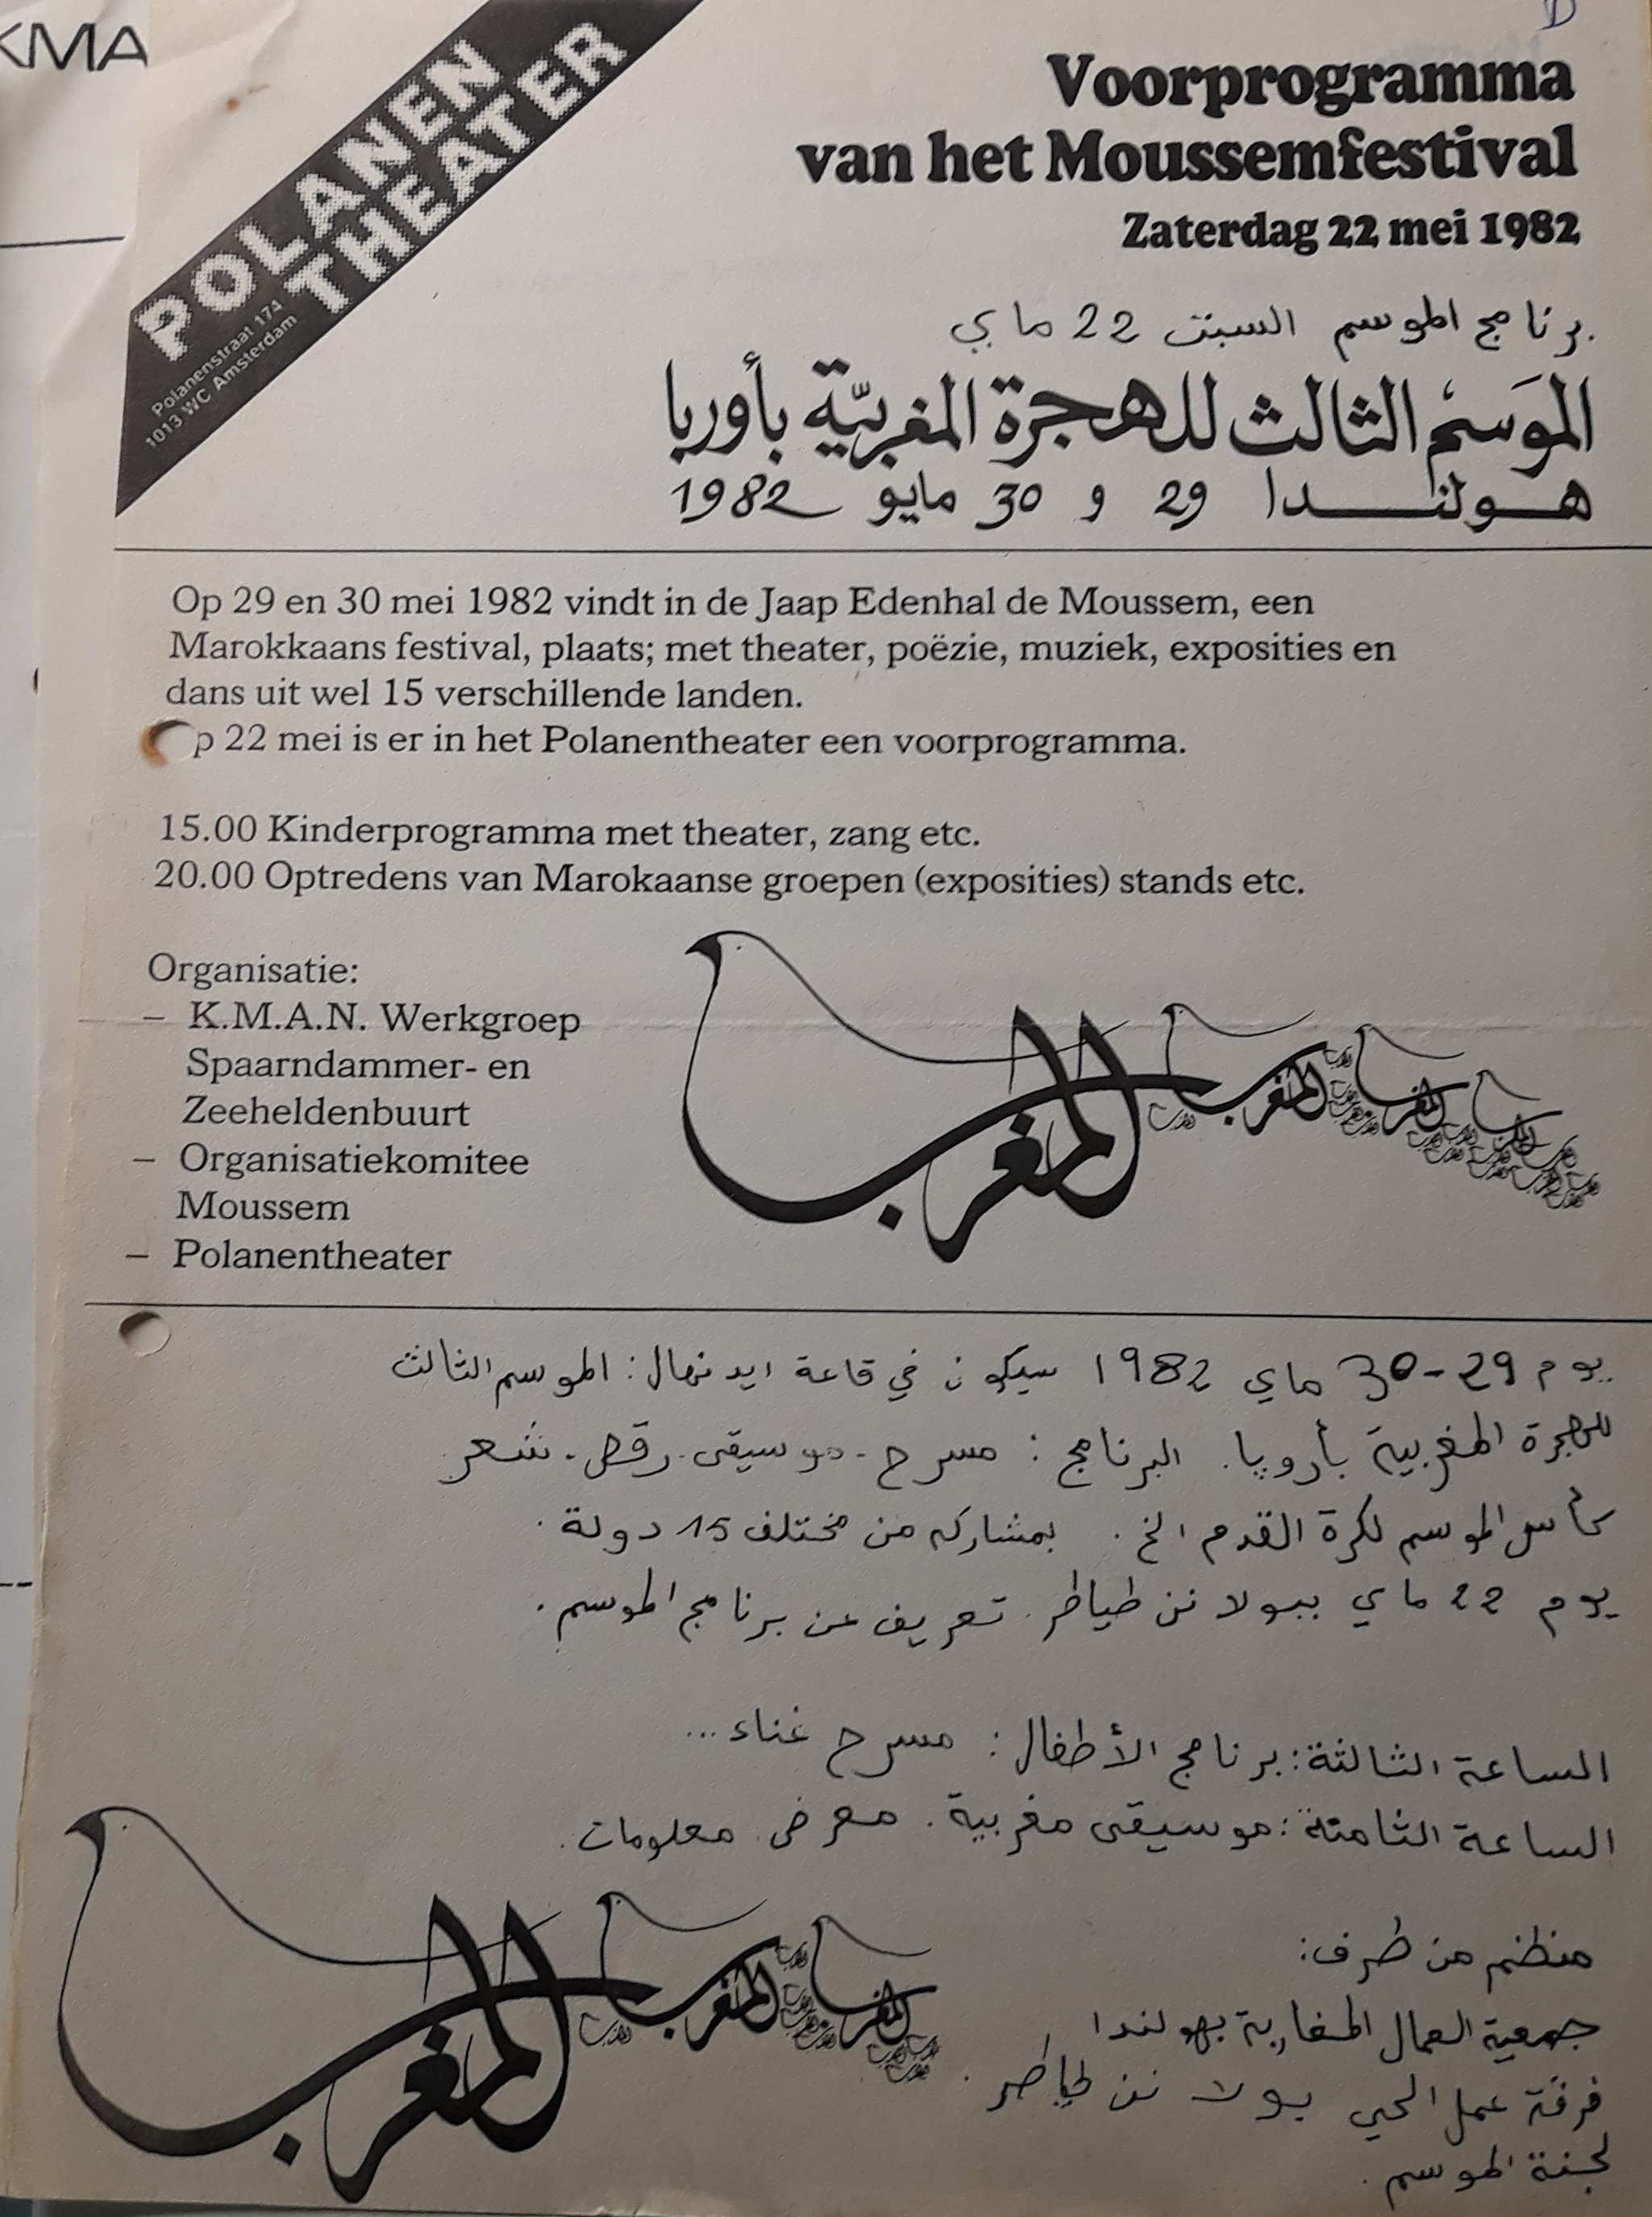 KMA
D
POLANEN
THEATER
Polanenstraat 174
1013 WC Amsterdam
Voorprogramma
van het Moussemfestival
Zaterdag 22 mei 1982
برنامج الموسم السبت 22 ماي
الموَسمْ الثالث للهجرة المغربيّة بأوربا
هولندا 29 و 30 مايو 1982
Op 29 en 30 mei 1982 vindt in de Jaap Edenhal de Moussem, een
Marokkaans festival, plaats; met theater, poëzie, muziek, exposities en
dans uit wel 15 verschillende landen.
p 22 mei is er in het Polanentheater een voorprogramma.
15.00 Kinderprogramma met theater, zang etc.
20.00 Optredens van Marokaanse groepen (exposities) stands etc.
Organisatie:
– K.M.A.N. Werkgroep
Spaarndammer- en
Zeeheldenbuurt
– Organisatiekomitee
Moussem
– Polanentheater
المغرب
المغرب
المغرب
يوم 29-30 ماي 1982 سيكون في قاعة ايدنهال: الموسم الثالث
للهجرة المغربية بأروپا. البرنامج: مسرح - موسيقى. رقص. شعر
كأس الموسم لكرة القدم الخ. بمشاركه من مختلف 15 دولة.
يوم 22 ماي ببولا نن طياطر. تعريف عن برنامج الموسم.
الساعة الثالثة: برنامج الأطفال: مسرح غناء...
الساعة الثامنة: موسيقى مغربية. معرض. معلومات.
المغرب
المغرب
المغرب
منظم من طرف:
جمعية العمال المغاربة بهولندا
فرقة عمل الحي بولا نن طياطر.
لجنة الموسم.